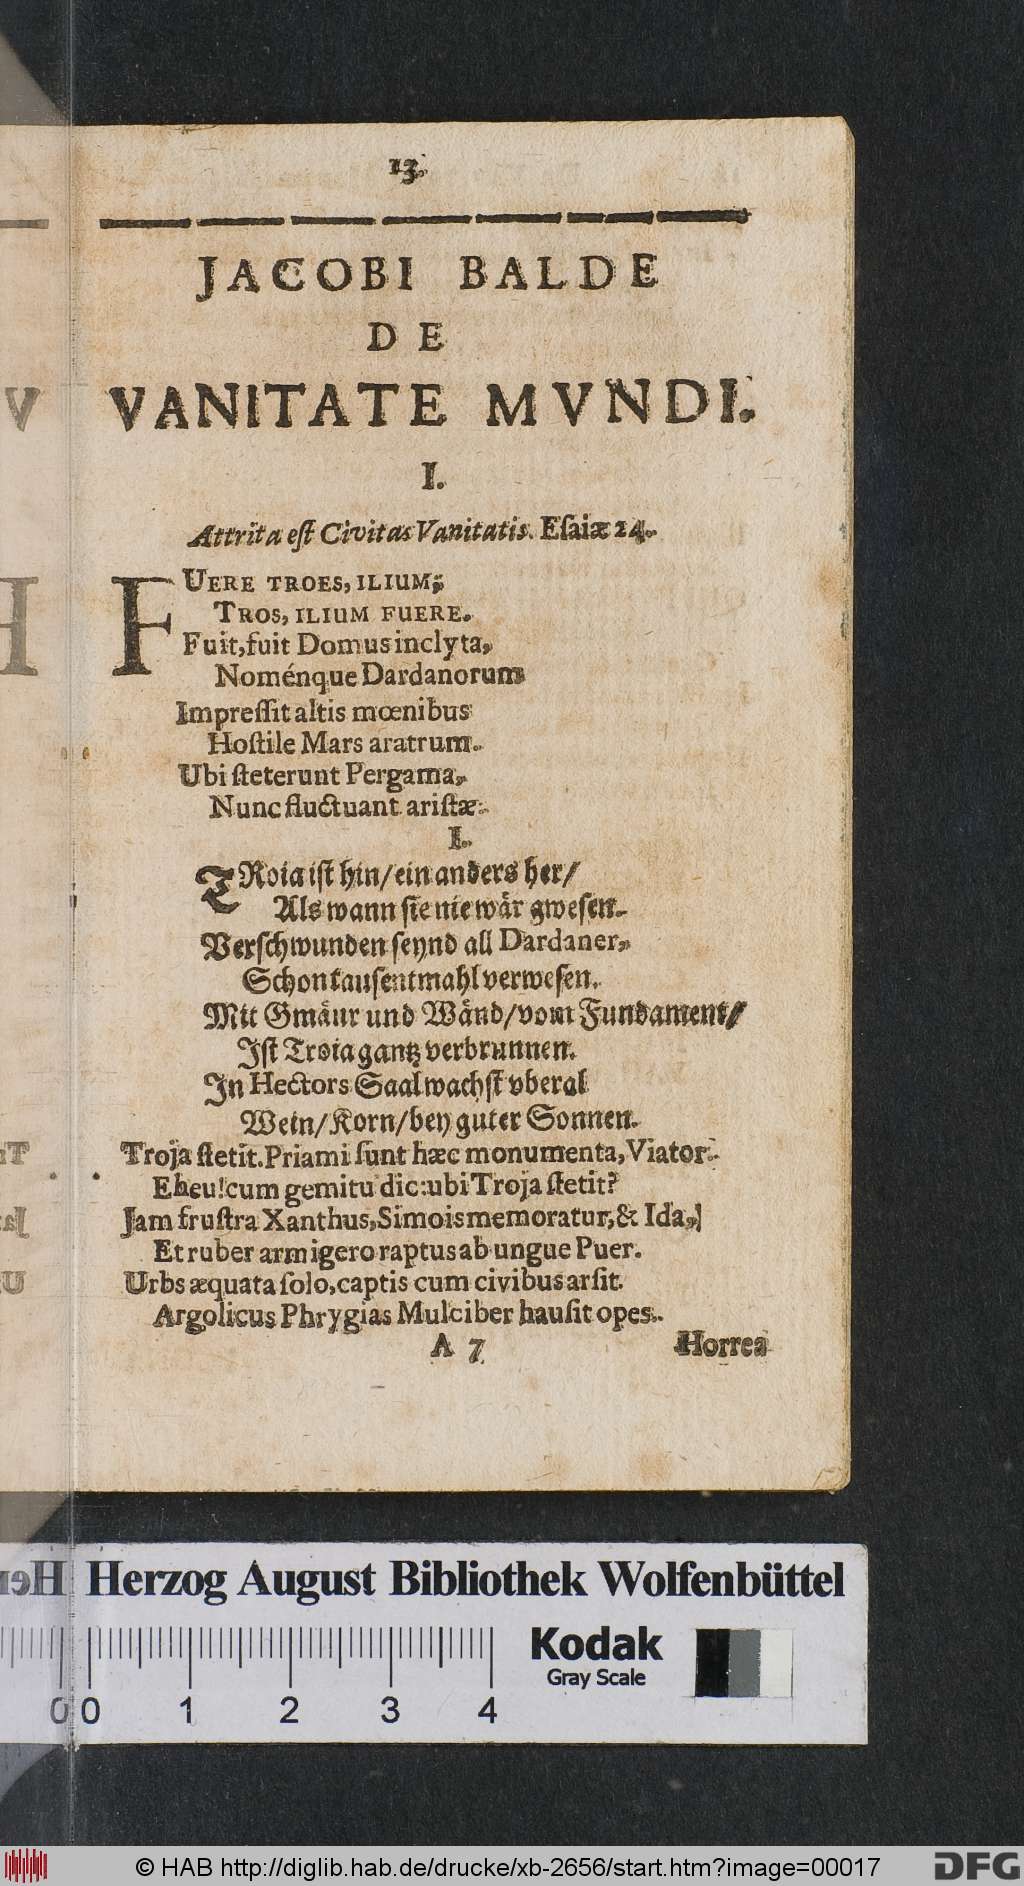 13.
JACOBI BALDE
DE
VANITATE MVNDI.
I.
Attrita est Civitas Vanitatis. Esaiæ 24.
FUERE TROES, ILIUM;
TROS, ILIUM FUERE.
Fuit, fuit Domus inclyta,
Noménque Dardanorum
Impreſſit altis mœnibus
Hoſtile Mars aratrum.
Ubi ſteterunt Pergama,
Nunc fluctuant ariſtæ.
I.
TRoia iſt hin/ ein anders her/
Als wann ſie nie wär gweſen.
Verſchwunden ſeynd all Dardaner,
Schon tauſentmahl verweſen.
Mit Gmäur und Wänd/ vom Fundament/
Iſt Troia gantz verbrunnen.
In Hectors Saal wachſt vberal
Wein/ Korn/ bey guter Sonnen.
Troja ſtetit. Priami ſunt hæc monumenta, Viator.
Eheu! cum gemitu dic: ubi Troja ſtetit?
Jam fruſtra Xanthus, Simois memoratur, & Ida,
Et ruber armigero raptus ab ungue Puer.
Urbs æquata ſolo, captis cum civibus arſit.
Argolicus Phrygias Mulciber hauſit opes.
A 7 Horrea
Herzog August Bibliothek Wolfenbüttel
Kodak
Gray Scale
0 0 1 2 3 4
© HAB http://diglib.hab.de/drucke/xb-2656/start.htm?image=00017
DFG